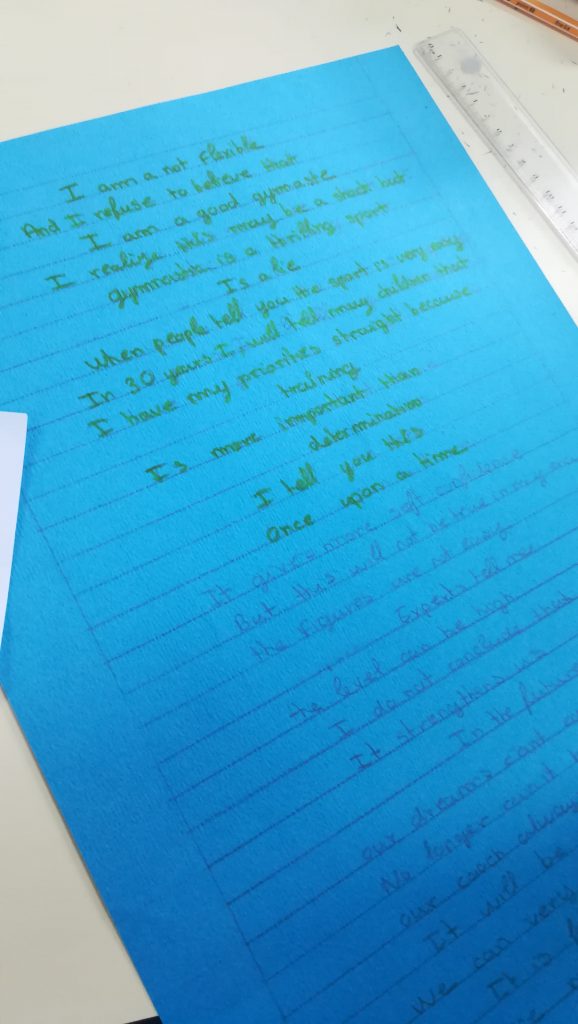 I am a not flexible
And I refuse to beleive that
I am a good gymnaste
I realize this may be a shock but
gymnastic is a thrilling sport
Is a lie
when people tell you the sport is very easy
In 30 years I, will tell may children that
I have my priorities straight because
training
Is more important than
determination
I tell you this
once upon a time
It gives more self confidence
But this will not be true in my
the figures are not easy
Experts tell me
the level can be high
I do not conclude that
It strengthens us
In the future
our dreams cant
No longer
our coach always
It will be
we can very
It is